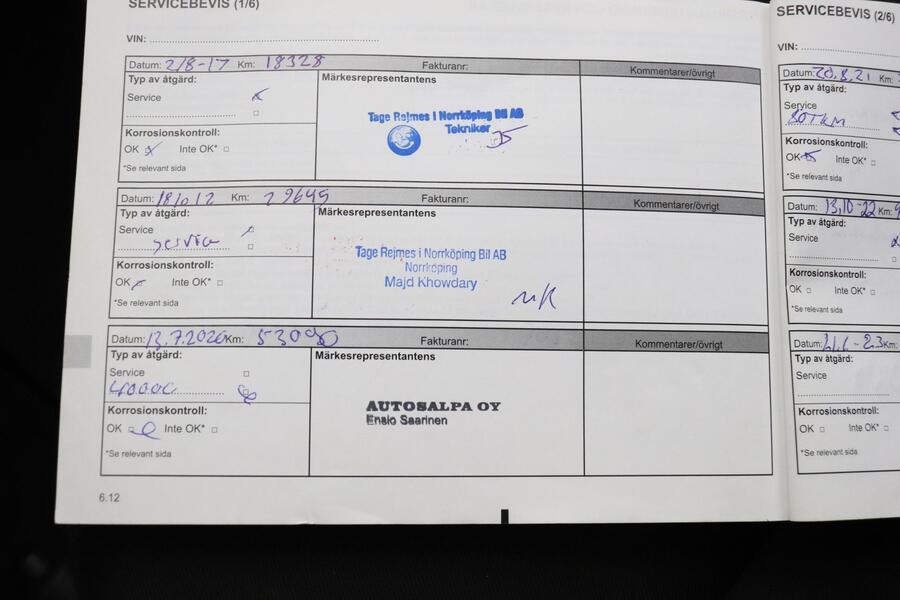 SERVICEBEVIS (1/6)
VIN:
Datum: 2/8-17 Km: 18328 Fakturanr: Kommentarer/övrigt
Typ av åtgärd: Märkesrepresentantens
Service x
Tage Rejmes i Norrköping Bil AB
Tekniker
Korrosionskontroll:
OK x Inte OK*
*Se relevant sida
Datum: Km: 29645 Fakturanr: Kommentarer/övrigt
Typ av åtgärd: Märkesrepresentantens
Service
service
Tage Rejmes i Norrköping Bil AB
Norrköping
Majd Khowdary
MK
Korrosionskontroll:
OK Inte OK*
*Se relevant sida
Datum: 13.7.2020 Km: Fakturanr: Kommentarer/övrigt
Typ av åtgärd: Märkesrepresentantens
Service
AUTOSALPA OY
Ensio Saarinen
Korrosionskontroll:
OK Inte OK*
*Se relevant sida
6.12
SERVICEBEVIS (2/6)
VIN:
Datum: 20.8.21 Km:
Typ av åtgärd:
Service
80TKM
Korrosionskontroll:
OK Inte OK*
*Se relevant sida
Datum: 13,10-22 Km:
Typ av åtgärd:
Service
Korrosionskontroll:
OK Inte OK*
*Se relevant sida
Datum: Km:
Typ av åtgärd:
Service
Korrosionskontroll:
OK Inte OK*
*Se relevant sida